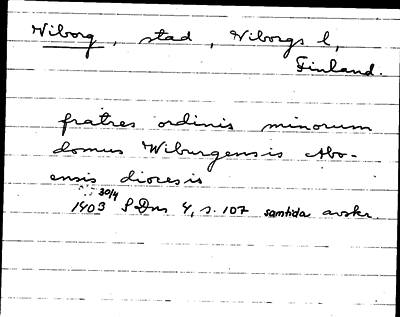 Wiborg, stad, Wiborgs l,
Finland.
fratres ordinis minorum
domus Wiburgensis Abo-
ensis diocesis
30/4
1403 SDns 4, s. 107 samtida avskr.